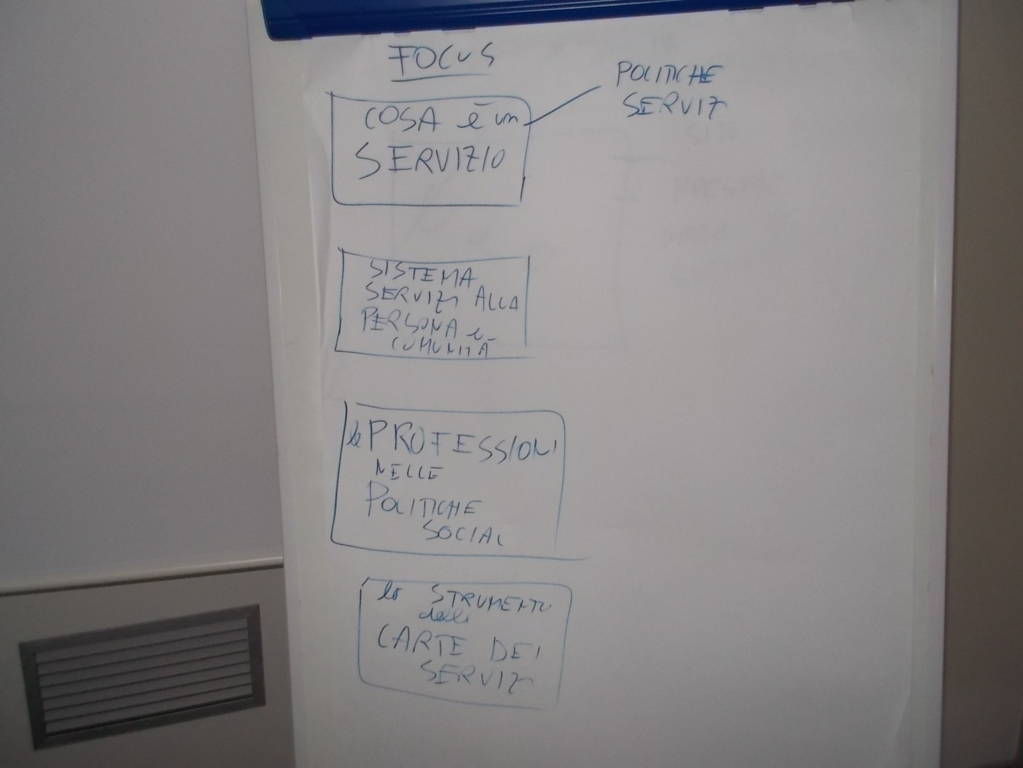 FOCUS
COSA è un
SERVIZIO
POLITICHE
SERVIZI
SISTEMA
SERVIZI ALLA
PERSONA e
COMUNITÀ
le PROFESSIONI
NELLE
POLITICHE
SOCIALI
lo STRUMENTO
delle
CARTE DEI
SERVIZI